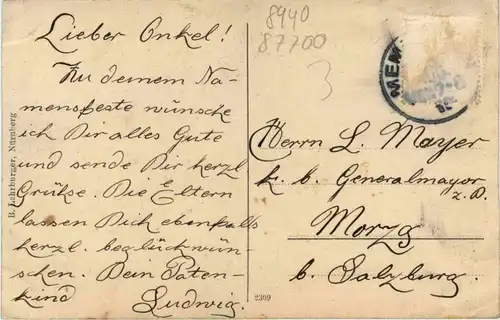 Lieber Onkel!
Zu deinem Na-
mensfeste wünsche
ich Dir alles Gute
und sende Dir herzl
Grüße. Die Eltern
lassen Dich ebenfalls
herzl. beglückwün-
schen. Dein Paten-
kind Ludwig.
8940
87700
3
MEM
Herrn L. Mayer
k. b. Generalmajor
z. D.
Morzg
b. Salzburg.
B. Lehrburger, Nürnberg
2309